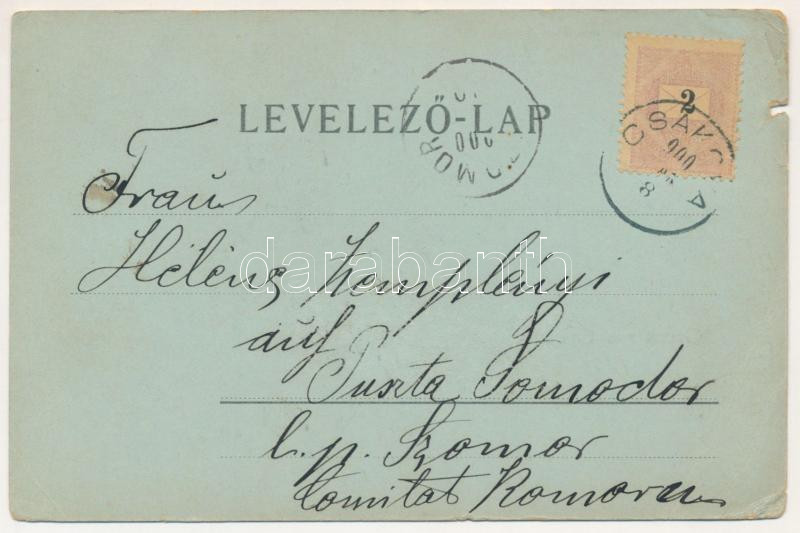 LEVELEZŐ-LAP
2
CSAKOVA
900
8
SZOMOR
900
Frau
Helene Kemplényi
auf
Puszta Somodor
l. p. Szomor
Comitat Komorn
darabanth